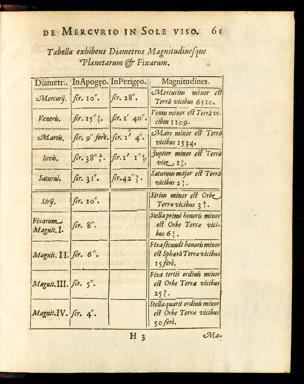 DE MERCVRIO IN SOLE VISO. 61
Tabella exhibens Diametros Magnitudinesque
Planetarum & Fixarum.
Diametri. In Apogeo. In Perigeo. Magnitudines.
Mercurij. scr. 10". scr. 28". Mercurius minor est
Terrâ vicibus 6510.
Veneris. scr. 15" scr. 1' 40". Venus minor est Terrâ vi-
cibus 1109.
Martis. scr. 9" ferè. scr. 1' 4". Mars minor est Terrâ
vicibus 1534.
Iovis. scr. 38" scr. 1' 1" Jupiter minor est Terrâ
vice 1
Saturni. scr. 31". scr. 42" Saturnus major est Terrâ
vicibus 2
Sirij. scr. 10". Sirius minor est Orbe
Terræ vicibus 3
Fixarum
Magnit. I. scr. 8". Stella primi honoris minor
est Orbe Terræ vici-
bus 6
Magnit. II. scr. 6". Fixa secundi honoris minor
est Sphærâ Terræ vicibus
15 ferè.
Magnit. III. scr. 5". Fixa tertii ordinis minor
est Orbe Terræ vicibus
25
Magnit. IV. scr. 4". Stella quarti ordinis minor
est Orbe Terræ vicibus
50 ferè.
H 3 Ma-